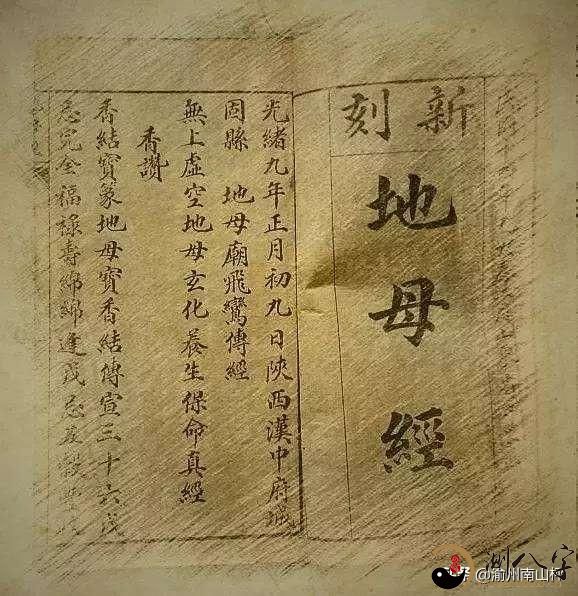 新刻
地母經
光緒九年正月初九日陝西漢中府城
固縣 地母廟飛鸞傳經
無上虛空地母玄化養生保命真經
香讚
香結寶篆地母寶香結傳宣三十六戊
忌完全福祿壽綿綿逢戊忌
測八字
@渝州南山村